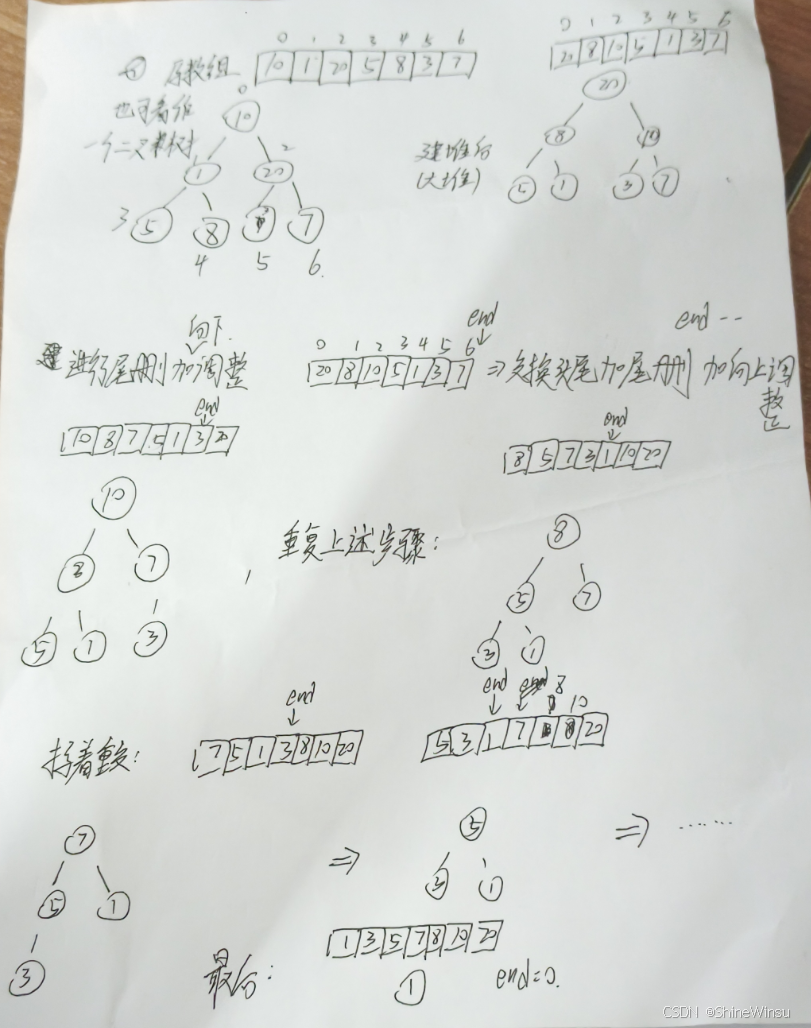 0 1 2 3 4 5 6
原数组 10 1 20 5 8 3 7
也可看作
一个二叉树
0
10
1 20 2
3 5 8 7
4 5 6.
0 1 2 3 4 5 6
20 8 10 5 1 3 7
建堆后
(大堆)
20
8 10
5 1 3 7
向下
进行尾删加调整
end
0 1 2 3 4 5 6
20 8 10 5 1 3 7
end --
⇒交换头尾加尾删 加向上调整
end
10 8 7 5 1 3 20
10
8 7
5 1 3
end
8 5 7 3 1 10 20
重复上述步骤:
8
5 7
3 1
接着重复:
end
7 5 1 3 8 10 20
end end 8 10
5 3 1 7 20
7
5 1
3
⇒
5
3 1
⇒ ......
最后:
1 3 5 7 8 10 20
1
end=0.
CSDN @ShineWinsu